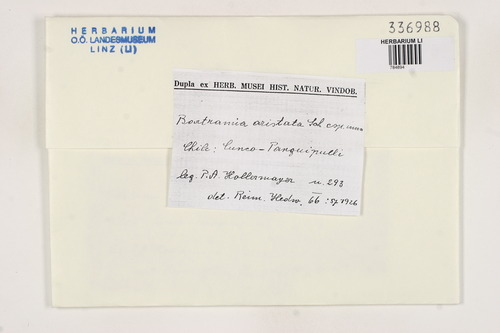 HERBARIUM
O.Ö. LANDESMUSEUM
LINZ (LI)
336988
HERBARIUM LI
Dupla ex HERB. MUSEI HIST. NATUR. VINDOB.
Bartramia aristata Sch.
Chile: Cunco-Panguipulli
leg. P. A. Hollermayer n. 293
det. Reim.